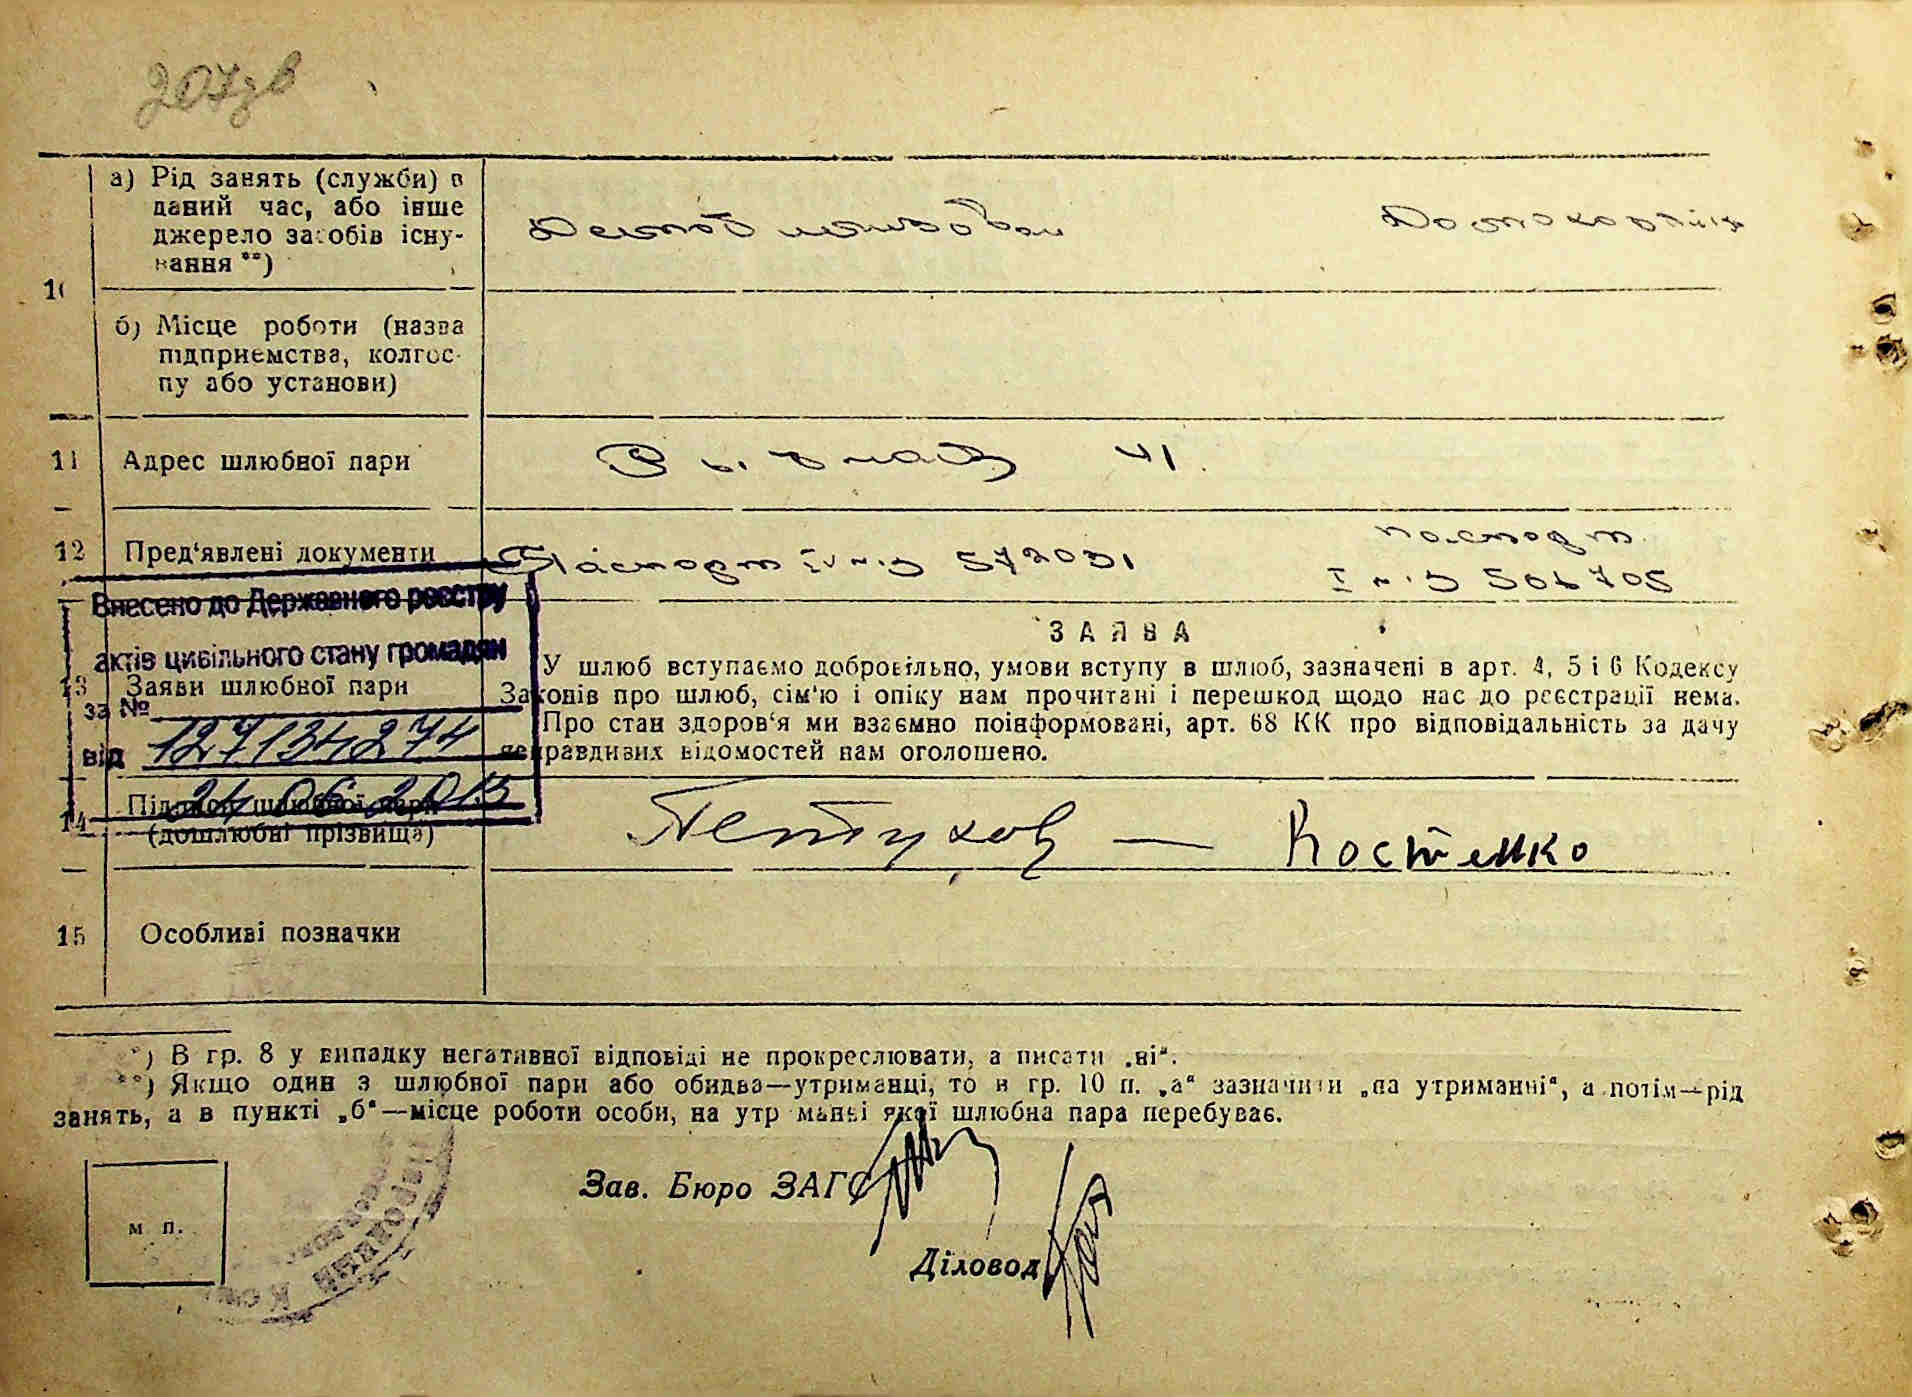 207зв
а) Рід занять (служби) в
даний час, або інше
джерело засобів існу-
вання **)
Демобилизован
Домохозяйка
10
б) Місце роботи (назва
підприємства, колгос-
пу або установи)
11 Адрес шлюбної пари
41
12 Пред'явлені документи
Паспорт IV 572031
паспорт
I
Внесено до Державного реєстру
актів цивільного стану громадян
за №
127134274
від
24 06 2013
ЗАЯВА
13 Заяви шлюбної пари
У шлюб вступаємо добровільно, умови вступу в шлюб, зазначені в арт. 4, 5 і 6 Кодексу
Законів про шлюб, сім'ю і опіку нам прочитані і перешкод щодо нас до реєстрації нема.
Про стан здоров'я ми взаємно поінформовані, арт. 68 КК про відповідальність за дачу
неправдивих відомостей нам оголошено.
14 Підписи шлюбної пари
(дошлюбні прізвища)
Петухов — Костенко
15 Особливі позначки
*) В гр. 8 у випадку негативної відповіді не прокреслювати, а писати „ні".
**) Якщо один з шлюбної пари або обидва—утриманці, то в гр. 10 п. „а" зазначити „на утриманні", а потім—рід
занять, а в пункті „б"—місце роботи особи, на утриманні якої шлюбна пара перебуває.
Зав. Бюро ЗАГС
м п.
Діловод